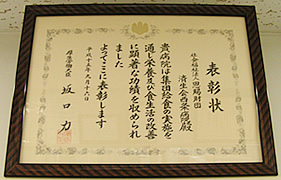 表彰状
社会福祉法人恩賜財団
済生会
病院殿
貴病院は集団給食の実施を
通じ栄養及び食生活の改善
に顕著な功績を収められ
ました
よってここに表彰します
平成十五年九月十六日
厚生労働大臣
坂口力